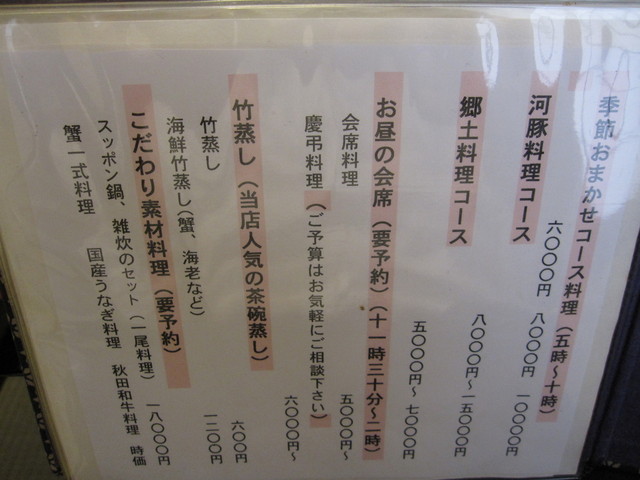 季節おまかせコース料理（五時～十時）
六〇〇〇円　八〇〇〇円　一〇〇〇〇円
河豚料理コース　八〇〇〇円～一五〇〇〇円
郷土料理コース　五〇〇〇円～七〇〇〇円
お昼の会席（要予約）（十一時三十分～二時）
会席料理　五〇〇〇円～
慶弔料理（ご予算はお気軽にご相談下さい）　六〇〇〇円～
竹蒸し（当店人気の茶碗蒸し）
竹蒸し　六〇〇円
海鮮竹蒸し（蟹、海老など）　一二〇〇円
こだわり素材料理（要予約）
スッポン鍋、雑炊のセット（一尾料理）　一八〇〇〇円
蟹一式料理　国産うなぎ料理　秋田和牛料理　時価